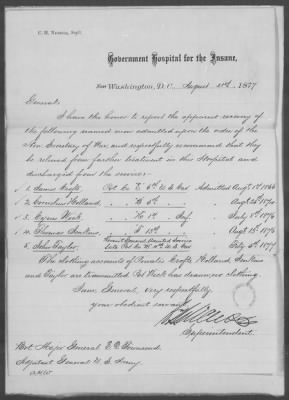 C. H. Nichols, Supt.
Government Hospital for the Insane,
Near Washington, D. C., August 21st, 1877
General:
I have the honor to report the apparent recovery of
the following named men admitted upon the order of the
Hon. Secretary of War, and respectfully recommend that they
be released from further treatment in this Hospital and
discharged from the service:
1. James Crofts, Pvt. Co. E, 6th U.S. Cav. Admitted Augt. 1st 1866
2. Cornelius Holland, " " H 5th " " " Augt. 20th 1870
3. Cyrus Week, " " H 1st " Inf. " July 1st 1876
4. Thomas Jenkins, " " F 13th " " " Augt. 15th 1876
5. John Taylor, General Mounted Service late Pvt. Co. M, 4th U.S. Cav. " July 6th 1877
The clothing accounts of Privates Crofts, Holland, Jenkins
and Taylor are transmitted. Pvt. Week has drawn no clothing.
I am, General, very respectfully,
your obedient servant,
Superintendent.
Bvt. Major General E. D. Townsend,
Adjutant General U.S. Army